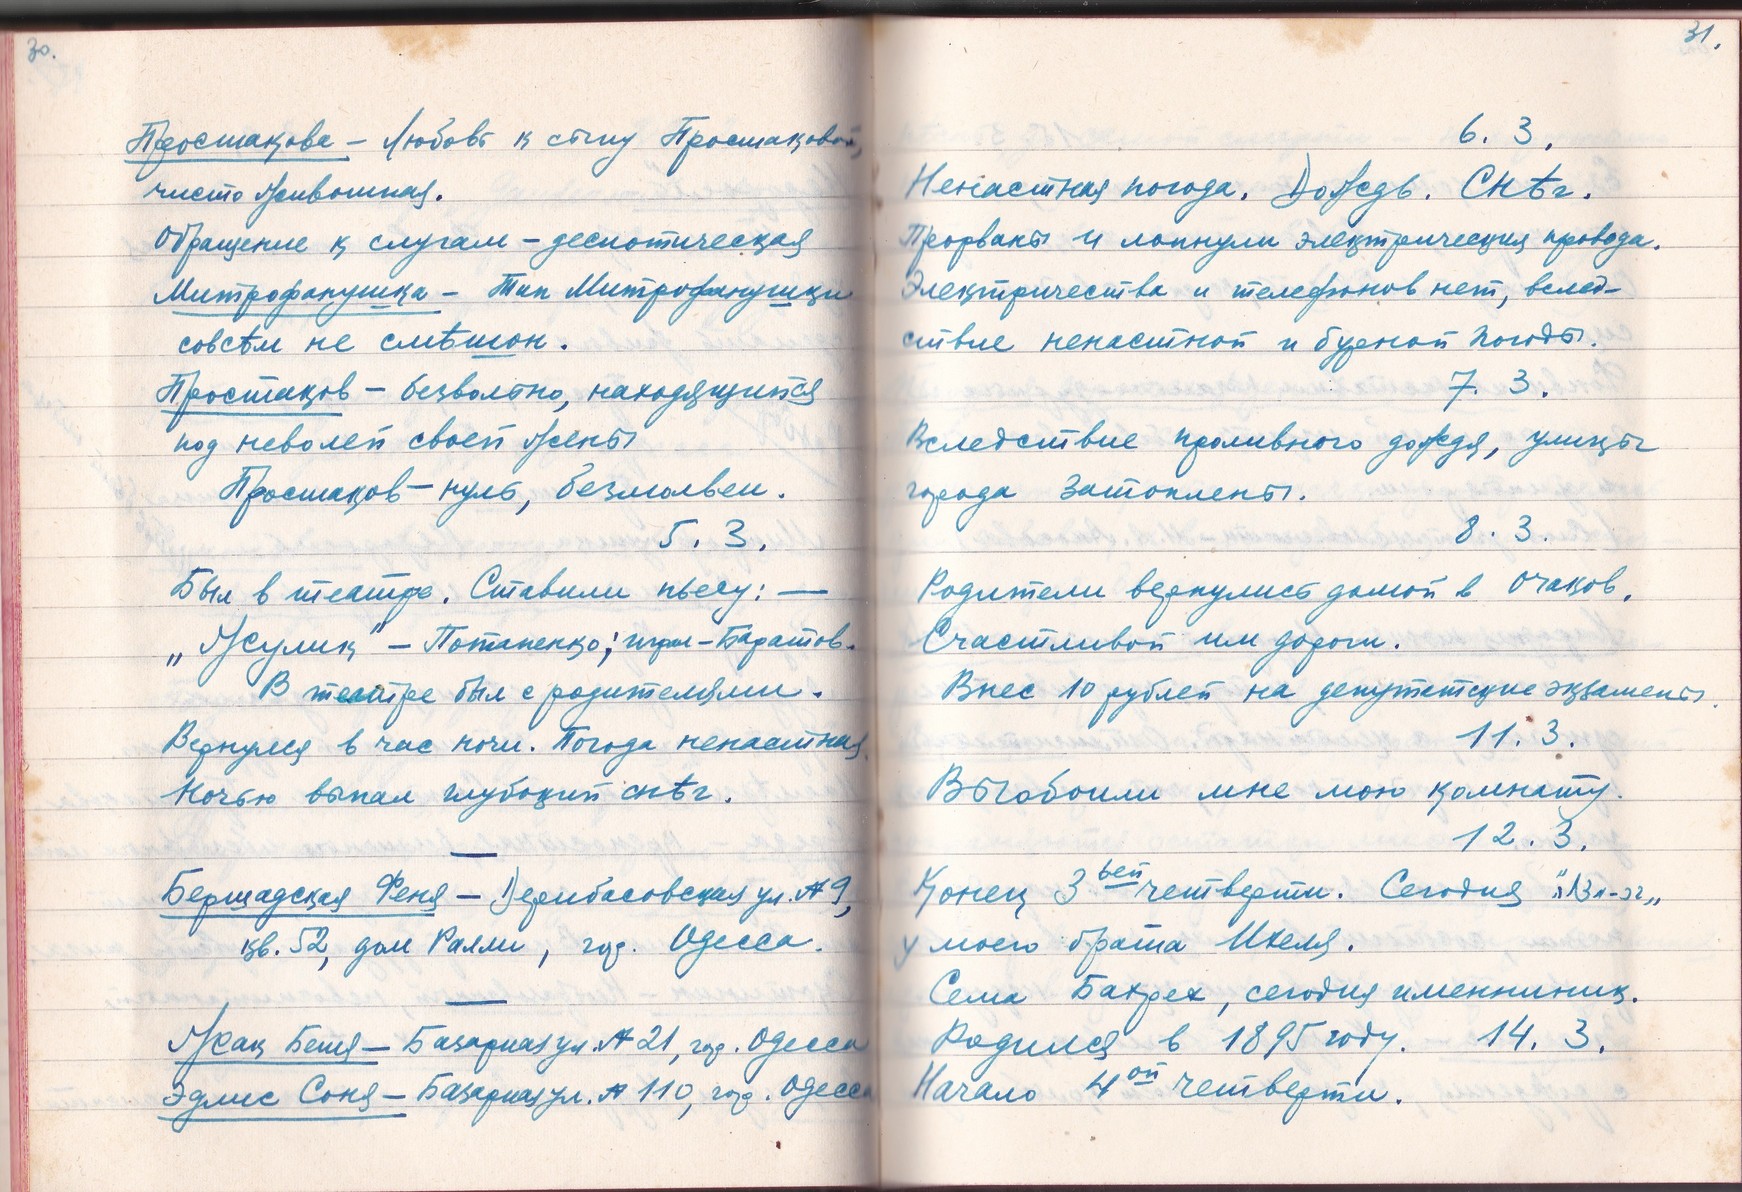 30.
Простакова – Любовь к сыну Простаковой,
чисто животная.
Обращение к слугам – деспотическая
Митрофанушка – Тип Митрофанушки
совсѣм не смѣшон.
Простаков – безвольно, находящийся
под неволей своей жены
Простаков – нуль, безмолвен.
5. 3.
Был в театре. Ставили пьесу: —
„Жулик" – Потапенко; играл – Баратов.
В театре был с родителями.
Вернулся в час ночи. Погода ненастная.
Ночью выпал глубокий снѣг.
—
Бершадская Феня – Дерибасовская ул. № 9,
кв. 52, дом Ралли, гор. Одесса.
—
Жак Беня – Базарная ул. № 21, гор. Одесса
Эдлис Соня – Базарная ул. № 110, гор. Одесса
31.
6. 3.
Ненастная погода. Дождь. Снѣг.
Прорваны и лопнули электрическия провода.
Электричества и телефонов нет, вслед-
ствие ненастной и бурной погоды.
7. 3.
Вследствие проливного дождя, улицы
города затоплены.
8. 3.
Родители вернулись домой в Очаков.
Счастливой им дороги.
Внес 10 рублей на депутатские экзамены.
11. 3.
Выобоили мне мою комнату.
12. 3.
Конец 3 ьей четверти. Сегодня
у моего брата Ихеля.
Сема Бахрех, сегодня именинник.
Родился в 1895 году. 14. 3.
Начало 4 ой четверти.